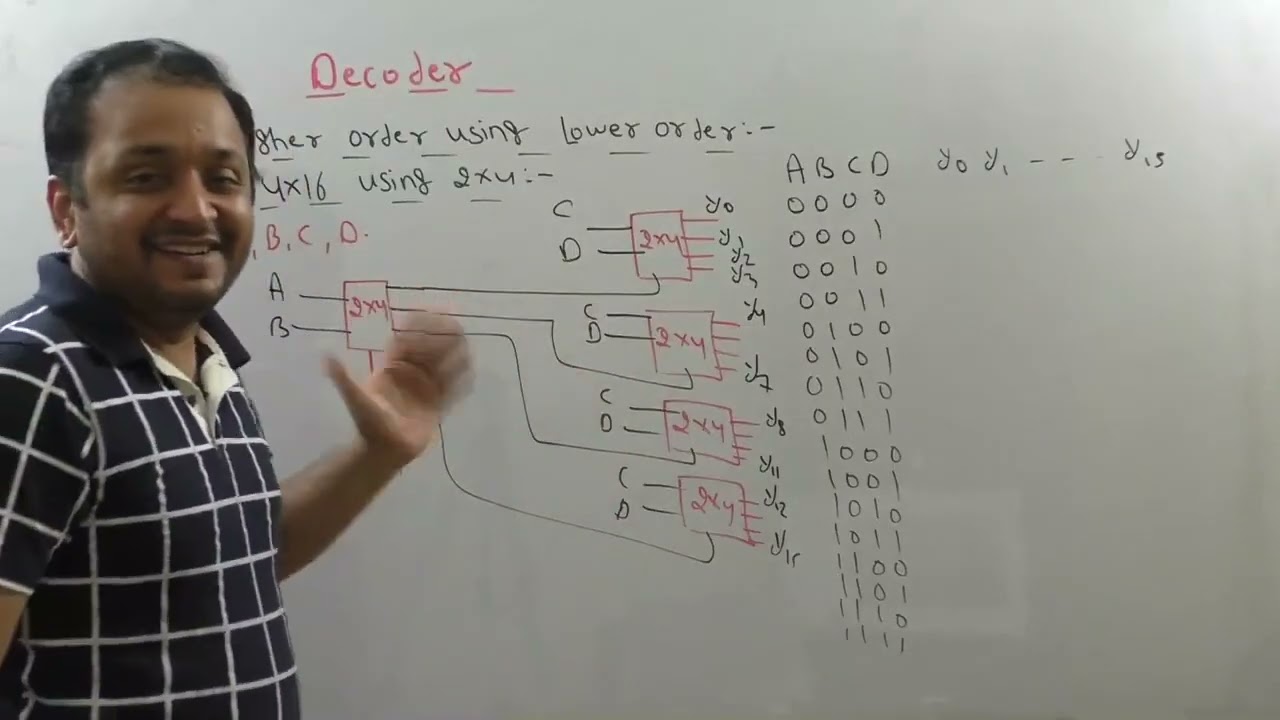 Decoder
gher order using lower order:-
4x16 using 2x4:-
, B, C, D.
A
B
2x4
C
D
2x4
y0
y1
y2
y3
C
D
2x4
y4
y7
C
D
2x4
y8
y11
C
D
2x4
y12
y15
A B C D y0 y1 - - - y15
0 0 0 0
0 0 0 1
0 0 1 0
0 0 1 1
0 1 0 0
0 1 0 1
0 1 1 0
0 1 1 1
1 0 0 0
1 0 0 1
1 0 1 0
1 0 1 1
1 1 0 0
1 1 0 1
1 1 1 0
1 1 1 1